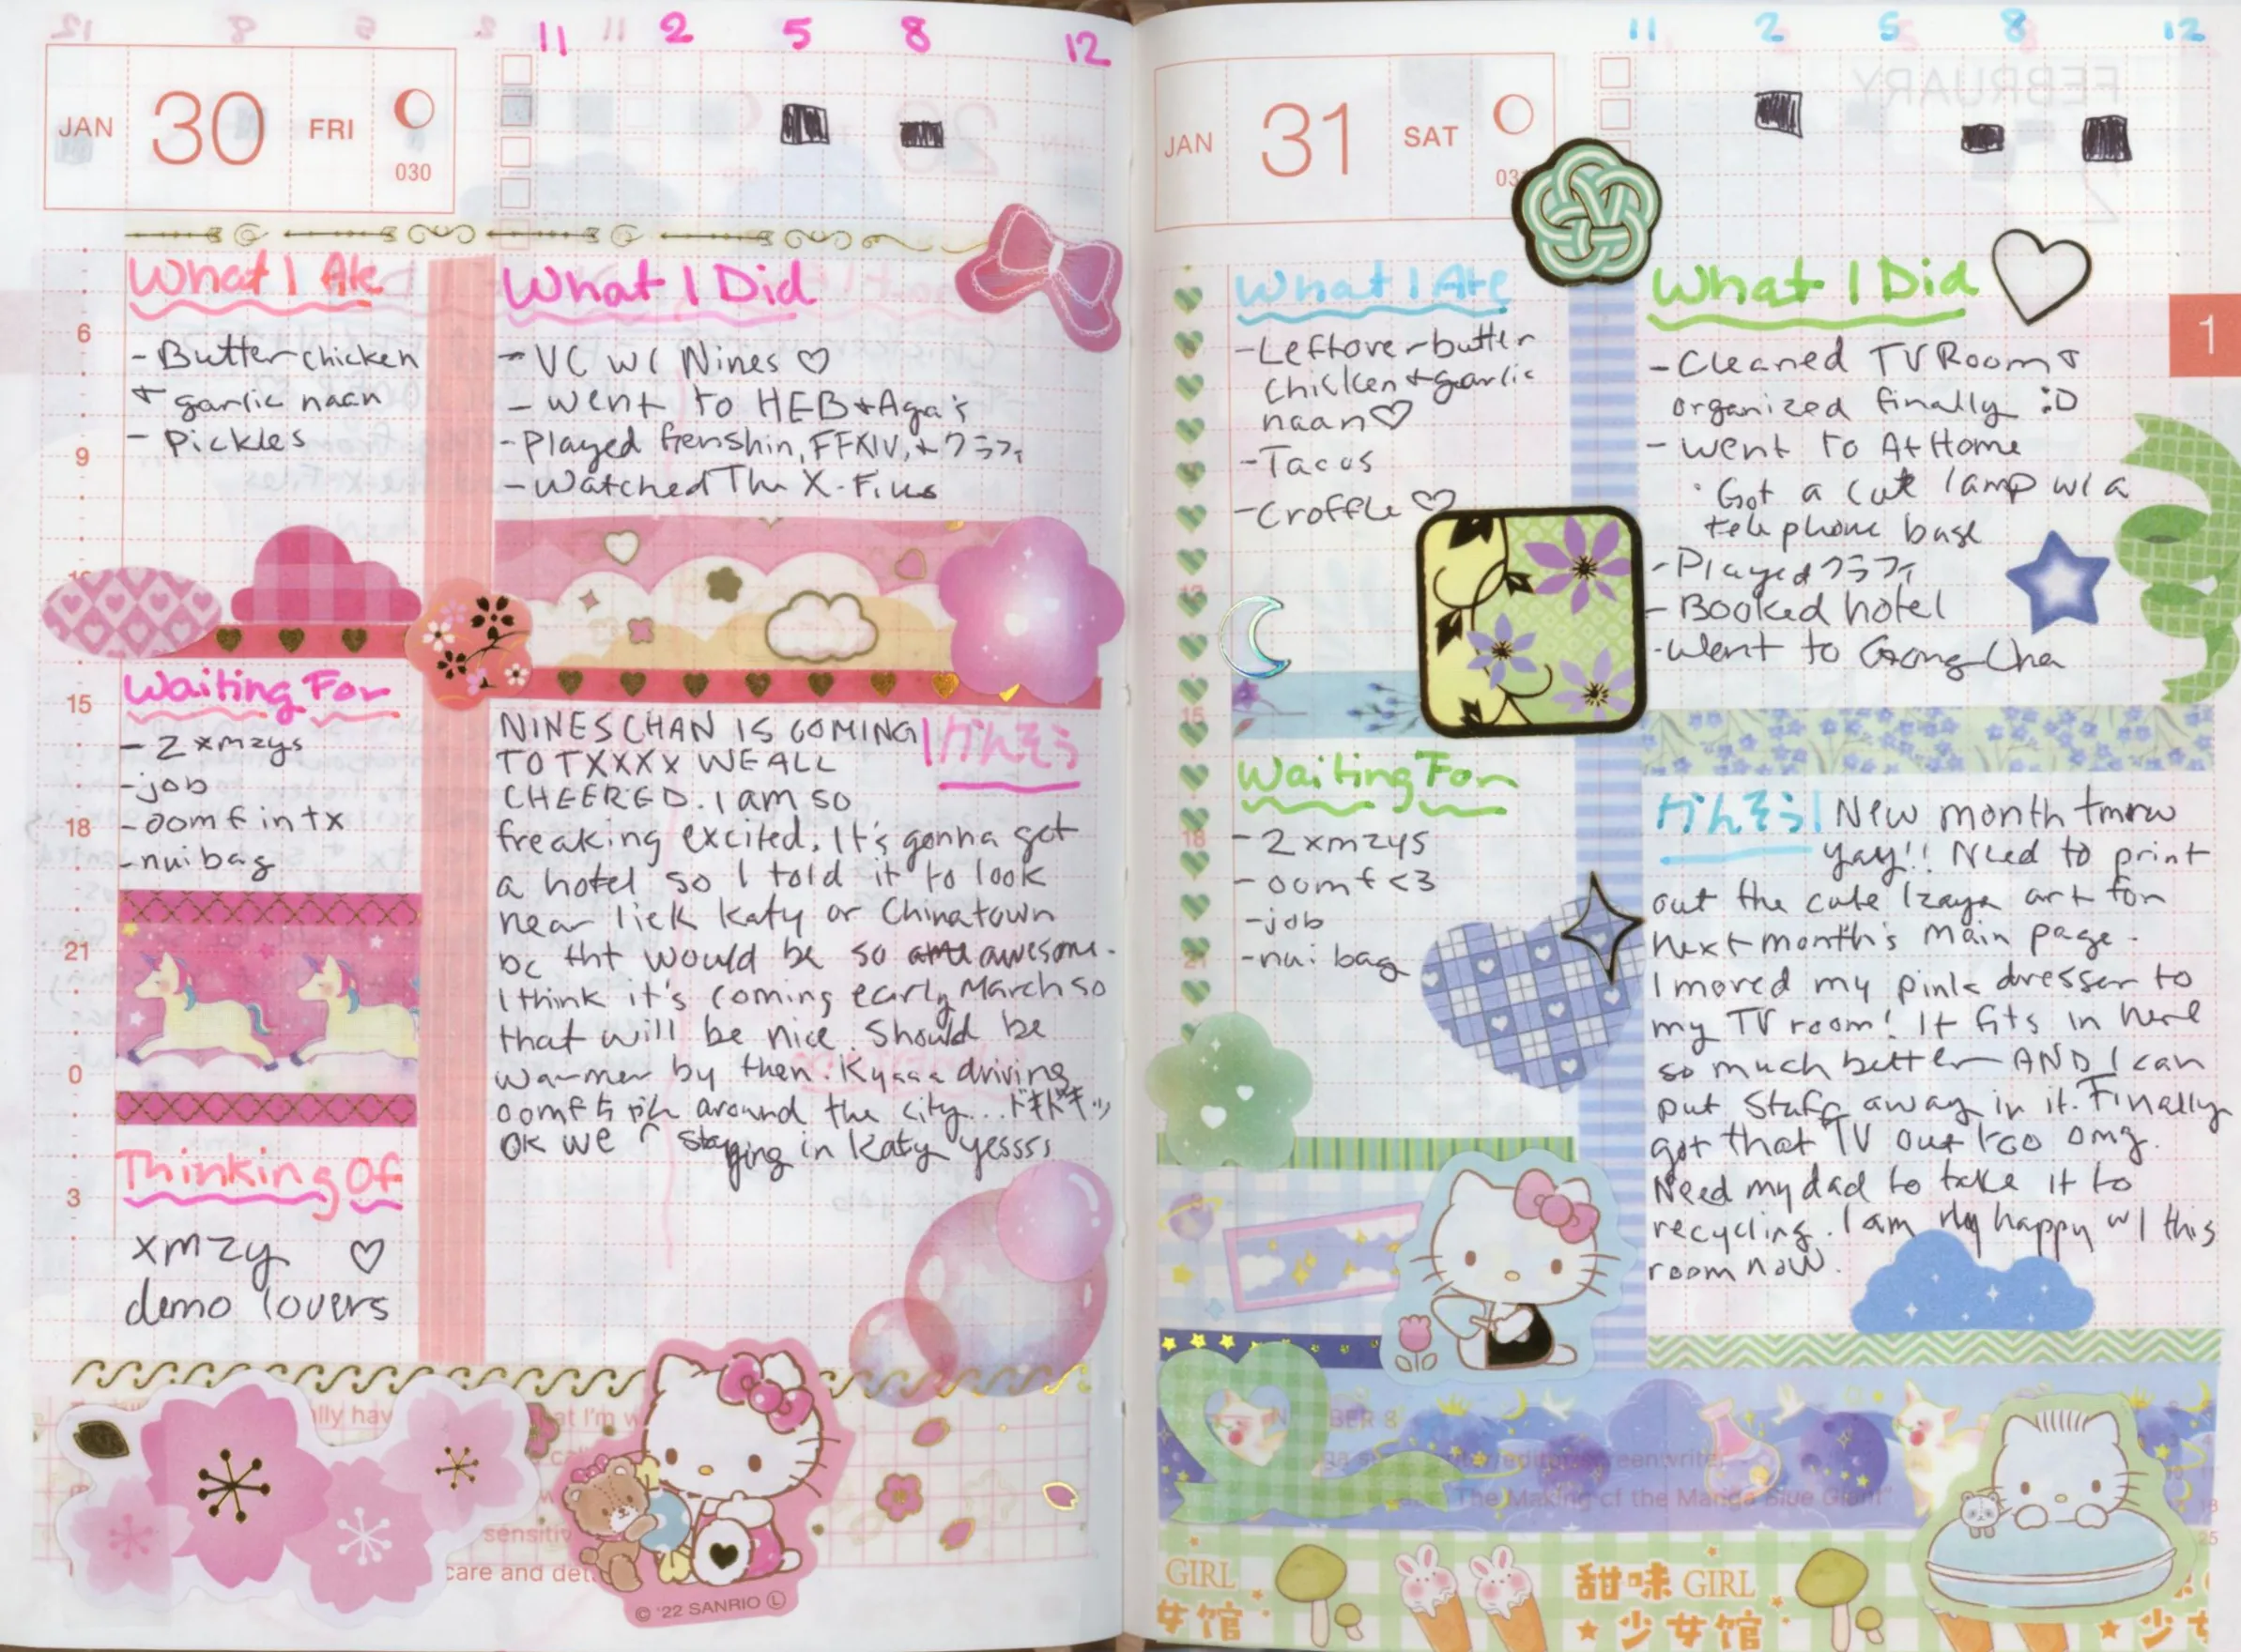 11 2 5 8 12
JAN 30 FRI
030
What I Ate
- Butter chicken
+ garlic naan
- Pickles
What I Did
- VC w/ Nines ♡
- went to HEB + Aga's
- Played Genshin, FFXIV, + クラフィ
- Watched The X-Files
Waiting For
- 2 xmzys
- job
- oomf in tx
- nui bag
Thinking Of
xmzy ♡
demo lovers
6
9
15
18
21
0
3
NINESCHAN IS COMING
TO TXXXX WE ALL
CHEERED. I am so
freaking excited, It's gonna get
a hotel so I told it to look
near liek Katy or Chinatown
bc tht would be so awesome.
I think it's coming early March so
that will be nice. Should be
warmer by then. Kyaaa driving
oomfちゃん around the city...ドキドキ...
OK we r staying in Katy yesss
けんそう
lly hav
at I'm w
sensitiv
care and det
© '22 SANRIO Ⓛ
11 2 5 8 12
JAN 31 SAT
What I Ate
- Leftover butter
chicken + garlic
naan ♡
- Tacos
- Croffle ♡
What I Did
- Cleaned TV Room +
organized finally :D
- Went to At Home
· Got a cute lamp w/ a
telephone base
- Played クラフィ
- Booked hotel
- Went to Gong Cha
1
Waiting For
- 2 xmzys
- oomf <3
- job
- nui bag
けんそう
New month tmrw
yay!! Need to print
out the cute Izaya art for
next month's main page.
I moved my pink dresser to
my TV room! It fits in here
so much better AND I can
put stuff away in it. Finally
got that TV out too omg.
Need my dad to take it to
recycling. I am rly happy w/ this
room now.
BER 8
The Making of the Manga Blue Giant"
GIRL 甜味 GIRL
女馆 ★少女馆 ★少女